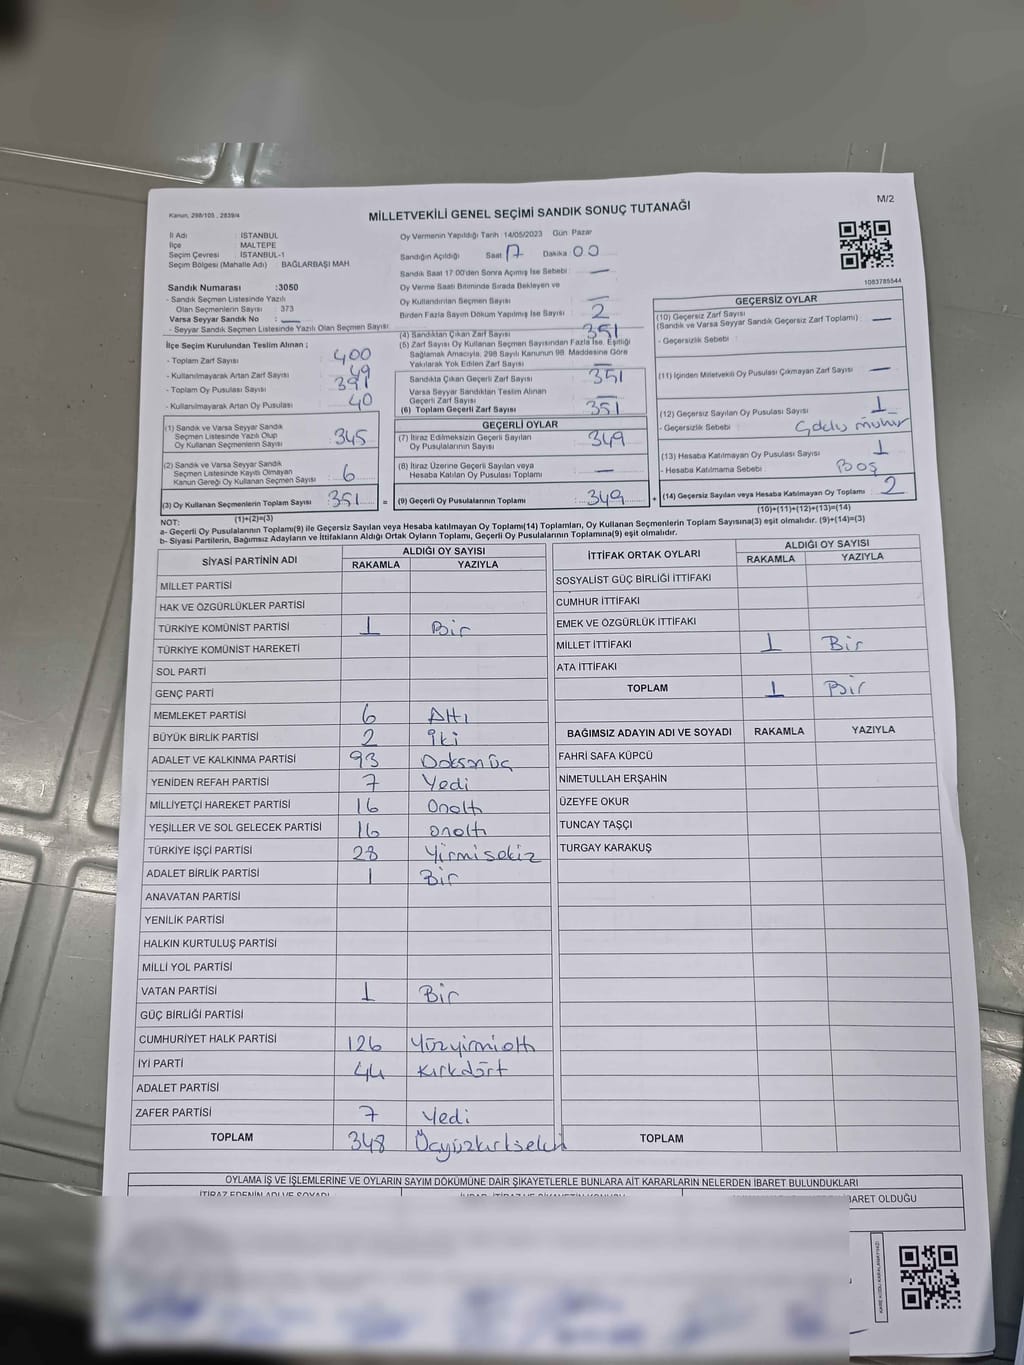 Kanun, 298/105 , 2839/4
MİLLETVEKİLİ GENEL SEÇİMİ SANDIK SONUÇ TUTANAĞI
M/2
İl Adı : İSTANBUL
İlçe : MALTEPE
Seçim Çevresi : İSTANBUL-1
Seçim Bölgesi (Mahalle Adı) : BAĞLARBAŞI MAH
Sandık Numarası :3050
- Sandık Seçmen Listesinde Yazılı
Olan Seçmenlerin Sayısı : 373
Varsa Seyyar Sandık No : —
- Seyyar Sandık Seçmen Listesinde Yazılı Olan Seçmen Sayısı:
Oy Vermenin Yapıldığı Tarih :14/05/2023 Gün Pazar
Sandığın Açıldığı Saat 17 Dakika 00
Sandık Saat 17.00'den Sonra Açımış İse Sebebi : —
Oy Verme Saati Bitiminde Sırada Bekleyen ve
Oy Kullandırılan Seçmen Sayısı : —
Birden Fazla Sayım Döküm Yapılmış İse Sayısı : 2
1083785544
İlçe Seçim Kurulundan Teslim Alınan ;
- Toplam Zarf Sayısı : 400
- Kullanılmayarak Artan Zarf Sayısı : 49
- Toplam Oy Pusulası Sayısı : 391
- Kullanılmayarak Artan Oy Pusulası : 40
(1) Sandık ve Varsa Seyyar Sandık
Seçmen Listesinde Yazılı Olup
Oy Kullanan Seçmenlerin Sayısı : 345
(2) Sandık ve Varsa Seyyar Sandık
Seçmen Listesinde Kayıtlı Olmayan
Kanun Gereği Oy Kullanan Seçmen Sayısı : 6
(3) Oy Kullanan Seçmenlerin Toplam Sayısı : 351
(1)+(2)=(3)
(4) Sandıktan Çıkan Zarf Sayısı : 351
(5) Zarf Sayısı Oy Kullanan Seçmen Sayısından Fazla İse, Eşitliği
Sağlamak Amacıyla, 298 Sayılı Kanunun 98. Maddesine Göre
Yakılarak Yok Edilen Zarf Sayısı : —
Sandıkta Çıkan Geçerli Zarf Sayısı : 351
Varsa Seyyar Sandıktan Teslim Alınan
Geçerli Zarf Sayısı : —
(6) Toplam Geçerli Zarf Sayısı : 351
GEÇERLİ OYLAR
(7) İtiraz Edilmeksizin Geçerli Sayılan
Oy Pusulalarının Sayısı : 349
(8) İtiraz Üzerine Geçerli Sayılan veya
Hesaba Katılan Oy Pusulası Toplamı : —
= (9) Geçerli Oy Pusulalarının Toplamı : 349 +
GEÇERSİZ OYLAR
(10) Geçersiz Zarf Sayısı
(Sandık ve Varsa Seyyar Sandık Geçersiz Zarf Toplamı) : —
- Geçersizlik Sebebi :
(11) İçinden Milletvekili Oy Pusulası Çıkmayan Zarf Sayısı : —
(12) Geçersiz Sayılan Oy Pusulası Sayısı : 1
- Geçersizlik Sebebi : Çoklu mühür
(13) Hesaba Katılmayan Oy Pusulası Sayısı : 1
- Hesaba Katılmama Sebebi : Boş
(14) Geçersiz Sayılan veya Hesaba Katılmayan Oy Toplamı : 2
(10)+(11)+(12)+(13)=(14)
NOT:
a- Geçerli Oy Pusulalarının Toplamı(9) ile Geçersiz Sayılan veya Hesaba katılmayan Oy Toplamı(14) Toplamları, Oy Kullanan Seçmenlerin Toplam Sayısına(3) eşit olmalıdır. (9)+(14)=(3)
b- Siyasi Partilerin, Bağımsız Adayların ve İttifakların Aldığı Ortak Oyların Toplamı, Geçerli Oy Pusulalarının Toplamına(9) eşit olmalıdır.
SİYASİ PARTİNİN ADI ALDIĞI OY SAYISI
RAKAMLA YAZIYLA
MİLLET PARTİSİ
HAK VE ÖZGÜRLÜKLER PARTİSİ
TÜRKİYE KOMÜNİST PARTİSİ 1 Bir
TÜRKİYE KOMÜNİST HAREKETİ
SOL PARTİ
GENÇ PARTİ
MEMLEKET PARTİSİ 6 Altı
BÜYÜK BİRLİK PARTİSİ 2 İki
ADALET VE KALKINMA PARTİSİ 93 Doksanüç
YENİDEN REFAH PARTİSİ 7 Yedi
MİLLİYETÇİ HAREKET PARTİSİ 16 Onaltı
YEŞİLLER VE SOL GELECEK PARTİSİ 16 onaltı
TÜRKİYE İŞÇİ PARTİSİ 28 Yirmisekiz
ADALET BİRLİK PARTİSİ 1 Bir
ANAVATAN PARTİSİ
YENİLİK PARTİSİ
HALKIN KURTULUŞ PARTİSİ
MİLLİ YOL PARTİSİ
VATAN PARTİSİ 1 Bir
GÜÇ BİRLİĞİ PARTİSİ
CUMHURİYET HALK PARTİSİ 126 Yüzyirmialtı
İYİ PARTİ 44 Kırkdört
ADALET PARTİSİ
ZAFER PARTİSİ 7 Yedi
TOPLAM 348 Üçyüzkırksekiz
İTTİFAK ORTAK OYLARI ALDIĞI OY SAYISI
RAKAMLA YAZIYLA
SOSYALİST GÜÇ BİRLİĞİ İTTİFAKI
CUMHUR İTTİFAKI
EMEK VE ÖZGÜRLÜK İTTİFAKI
MİLLET İTTİFAKI 1 Bir
ATA İTTİFAKI
TOPLAM 1 Bir
BAĞIMSIZ ADAYIN ADI VE SOYADI RAKAMLA YAZIYLA
FAHRİ SAFA KÜPCÜ
NİMETULLAH ERŞAHİN
ÜZEYFE OKUR
TUNCAY TAŞÇI
TURGAY KARAKUŞ
TOPLAM
OYLAMA İŞ VE İŞLEMLERİNE VE OYLARIN SAYIM DÖKÜMÜNE DAİR ŞİKAYETLERLE BUNLARA AİT KARARLARIN NELERDEN İBARET BULUNDUKLARI
İTİRAZ EDENİN ADI VE SOYADI
İBARET OLDUĞU